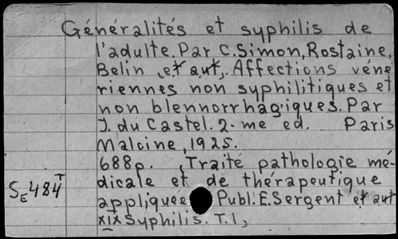 Généralités et syphilis de
l'adulte. Par C. Simon, Rostaine,
Belin et aut. Affections véné
riennes non syphilitiques et
non blennorrhagiques. Par
J. du Castel. 2-me ed. Paris
Maloine, 1925.
688p. (Traite pathologie mé-
SE484T dicale et de thérapeutique
appliquée Publ. E. Sergent et aut
XIX Syphilis. T. I,